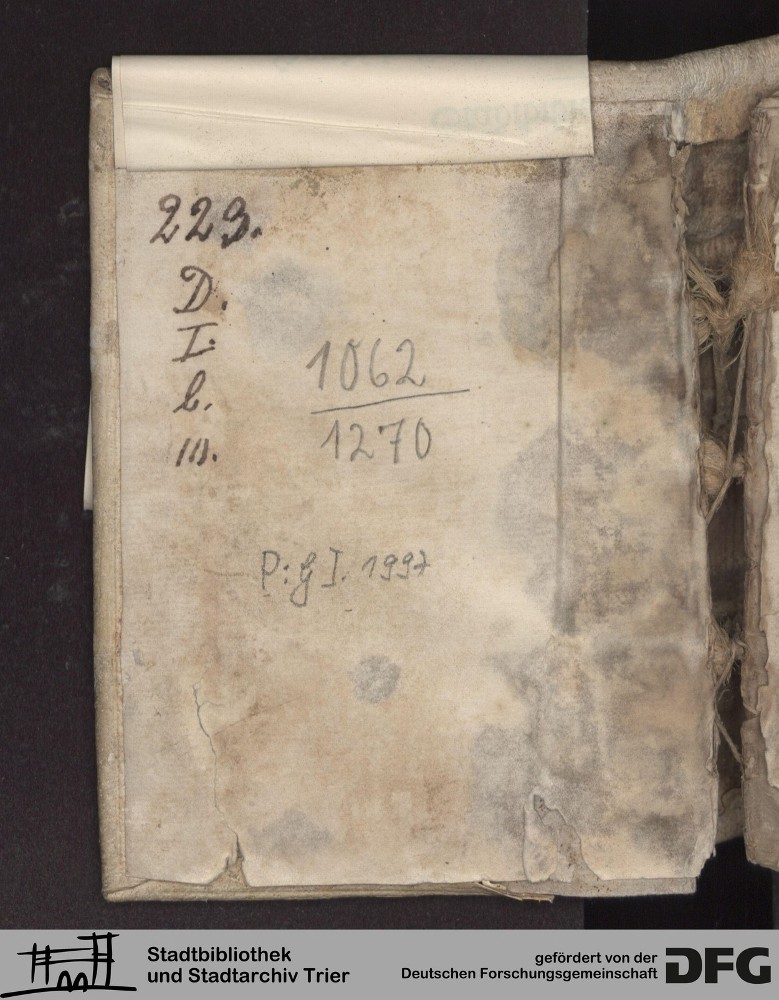 223.
D.
I.
b.
111.
1062
1270
P: g I. 1997
Stadtbibliothek
und Stadtarchiv Trier
gefördert von der
Deutschen Forschungsgemeinschaft
DFG